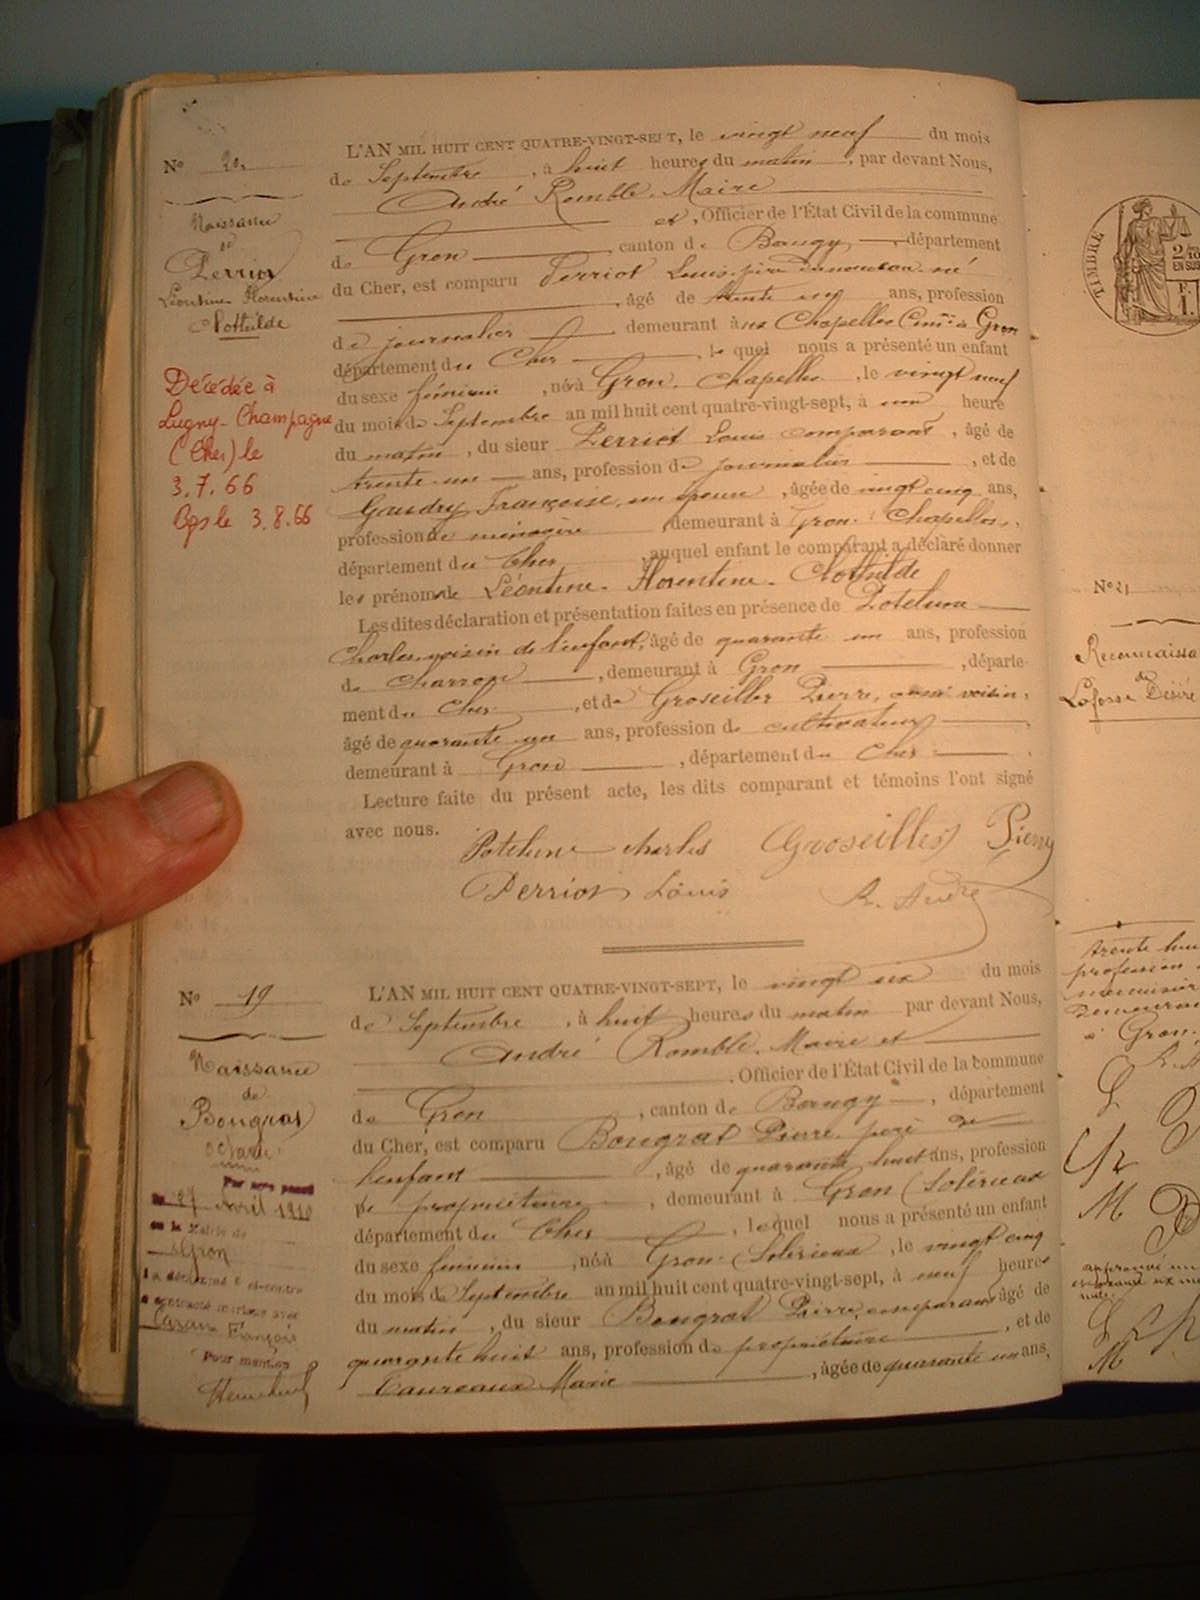 N° 20
Naissance
de
Perriot
Léontine Florentine
Clothilde
Décédée à
Lugny-Champagne
(Cher) le
3.7.66
le 3.8.66
L'AN MIL HUIT CENT QUATRE-VINGT-SEPT, le vingt neuf du mois
de Septembre, à huit heures du matin, par devant Nous,
André Romble, Maire
et, Officier de l'État Civil de la commune
de Gron canton de Baugy département
du Cher, est comparu Perriot Louis, père du nouveau né
, âgé de trente un ans, profession
de journalier demeurant aux Chapelles Cne de Gron
département du Cher, lequel nous a présenté un enfant
du sexe féminin, né à Gron, Chapelles, le vingt neuf
du mois de Septembre an mil huit cent quatre-vingt-sept, à une heure
du matin, du sieur Perriot Louis comparant, âgé de
trente un ans, profession de journalier, et de
Gaudry Françoise, son épouse, âgée de vingt cinq ans,
profession de ménagère, demeurant à Gron, Chapelles,
département du Cher, auquel enfant le comparant a déclaré donner
les prénoms de Léontine - Florentine - Clothilde
Les dites déclaration et présentation faites en présence de Potelune
Charles, voisin de l'enfant, âgé de quarante un ans, profession
de charron, demeurant à Gron, départe-
ment du Cher, et de Groseiller Pierre, aussi voisin,
âgé de quarante un ans, profession de cultivateur,
demeurant à Gron, département du Cher.
Lecture faite du présent acte, les dits comparant et témoins l'ont signé
avec nous.
Potelune charles Groseiller Pierre
Perriot Louis R. André
N° 19
Naissance
de
Bougrat
Octavie
Par acte passé
le 27 Avril 1910
en la Mairie de
Gron
la dénommée ci-contre
a contracté mariage avec
François
Pour mention
L'AN MIL HUIT CENT QUATRE-VINGT-SEPT, le vingt six du mois
de Septembre, à huit heures du matin par devant Nous,
André Romble, Maire et
, Officier de l'État Civil de la commune
de Gron, canton de Baugy, département
du Cher, est comparu Bougrat Pierre, père de
l'enfant, âgé de quarante huit ans, profession
de propriétaire, demeurant à Gron (Solérieux
département du Cher, lequel nous a présenté un enfant
du sexe féminin, né à Gron (Solérieux, le vingt cinq
du mois de Septembre an mil huit cent quatre-vingt-sept, à neuf heures
du matin, du sieur Bougrat Pierre, comparant âgé de
quarante huit ans, profession de propriétaire, et de
Caureaux Marie, âgée de quarante un ans,
TIMBRE
2/10
EN SUS
N° 21
Reconnaissa
de
Laforse Désiré
trente huit
profession
demeurant
à Gron.